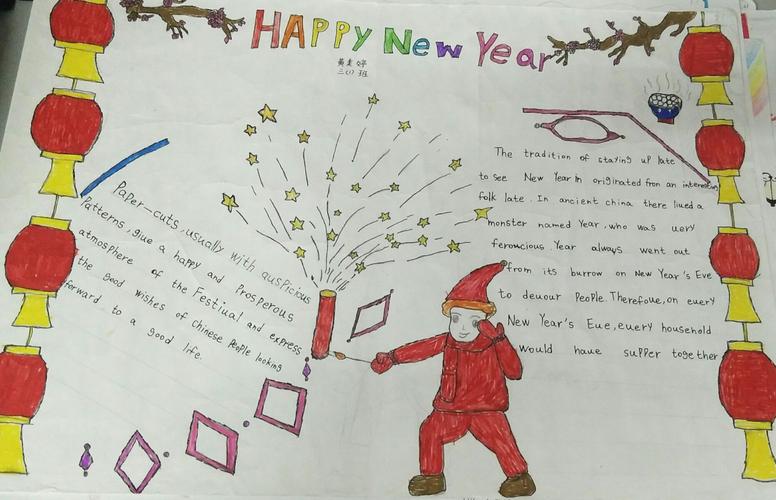 HAPPY New Year
三(1)班
Paper-cuts, usually with auspicious
Patterns, give a happy and Prosperous
atmosphere of the Festival and express
the good wishes of Chinese People looking
forward to a good life.
The tradition of staying up late
to see New Year in originated from an interesting
folk late. In ancient china there lived a
monster named Year, who was very
feromcious. Year always went out
from its burrow on New Year's Eve
to devour People. Therefoue, on every
New Year's Eve, every household
would have supper together